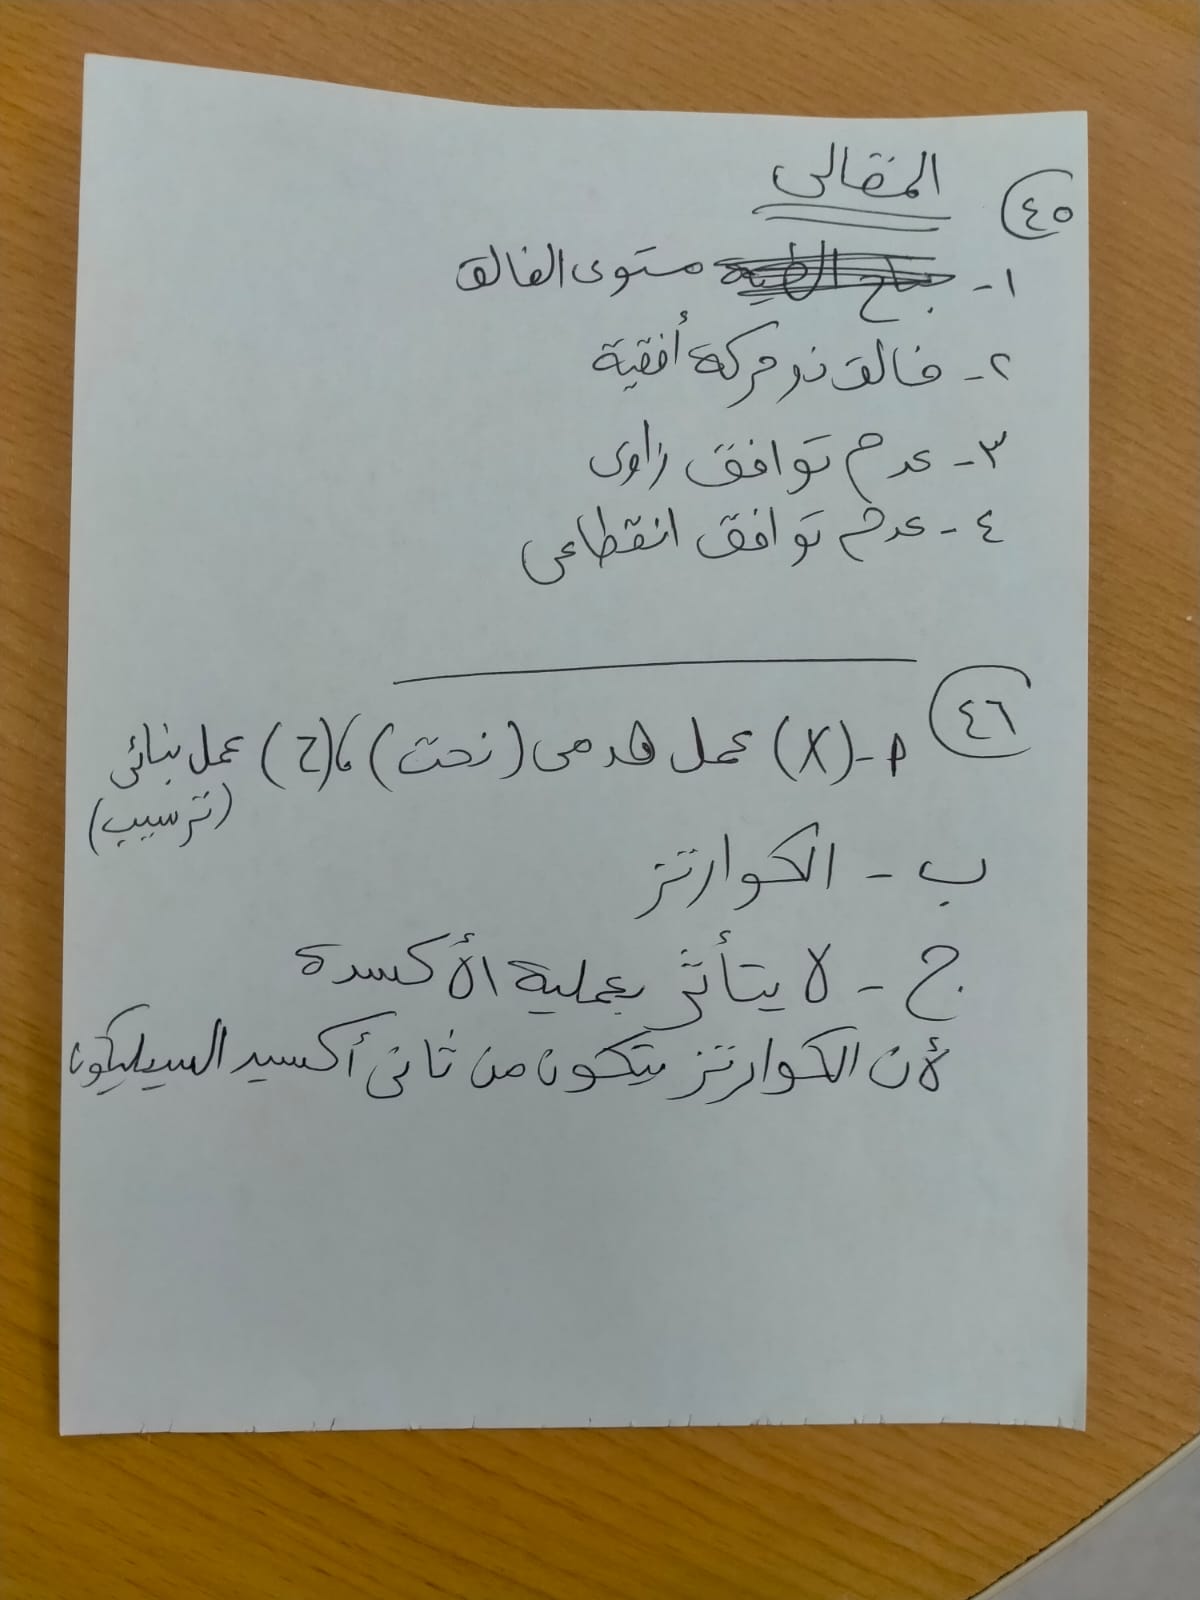 المقالى
٤٥
١- مستوى الفالق
٢- فالق ذو حركة أفقية
٣- عدم توافق زاوى
٤- عدم توافق انقطاعى
٤٦
أ- (X) عمل هدمى (نحت)، (Z) عمل بنائى
(ترسيب)
ب - الكوارتز
ج - لا يتأثر بعملية الأكسدة
لأن الكوارتز يتكون من ثانى أكسيد السيليكون